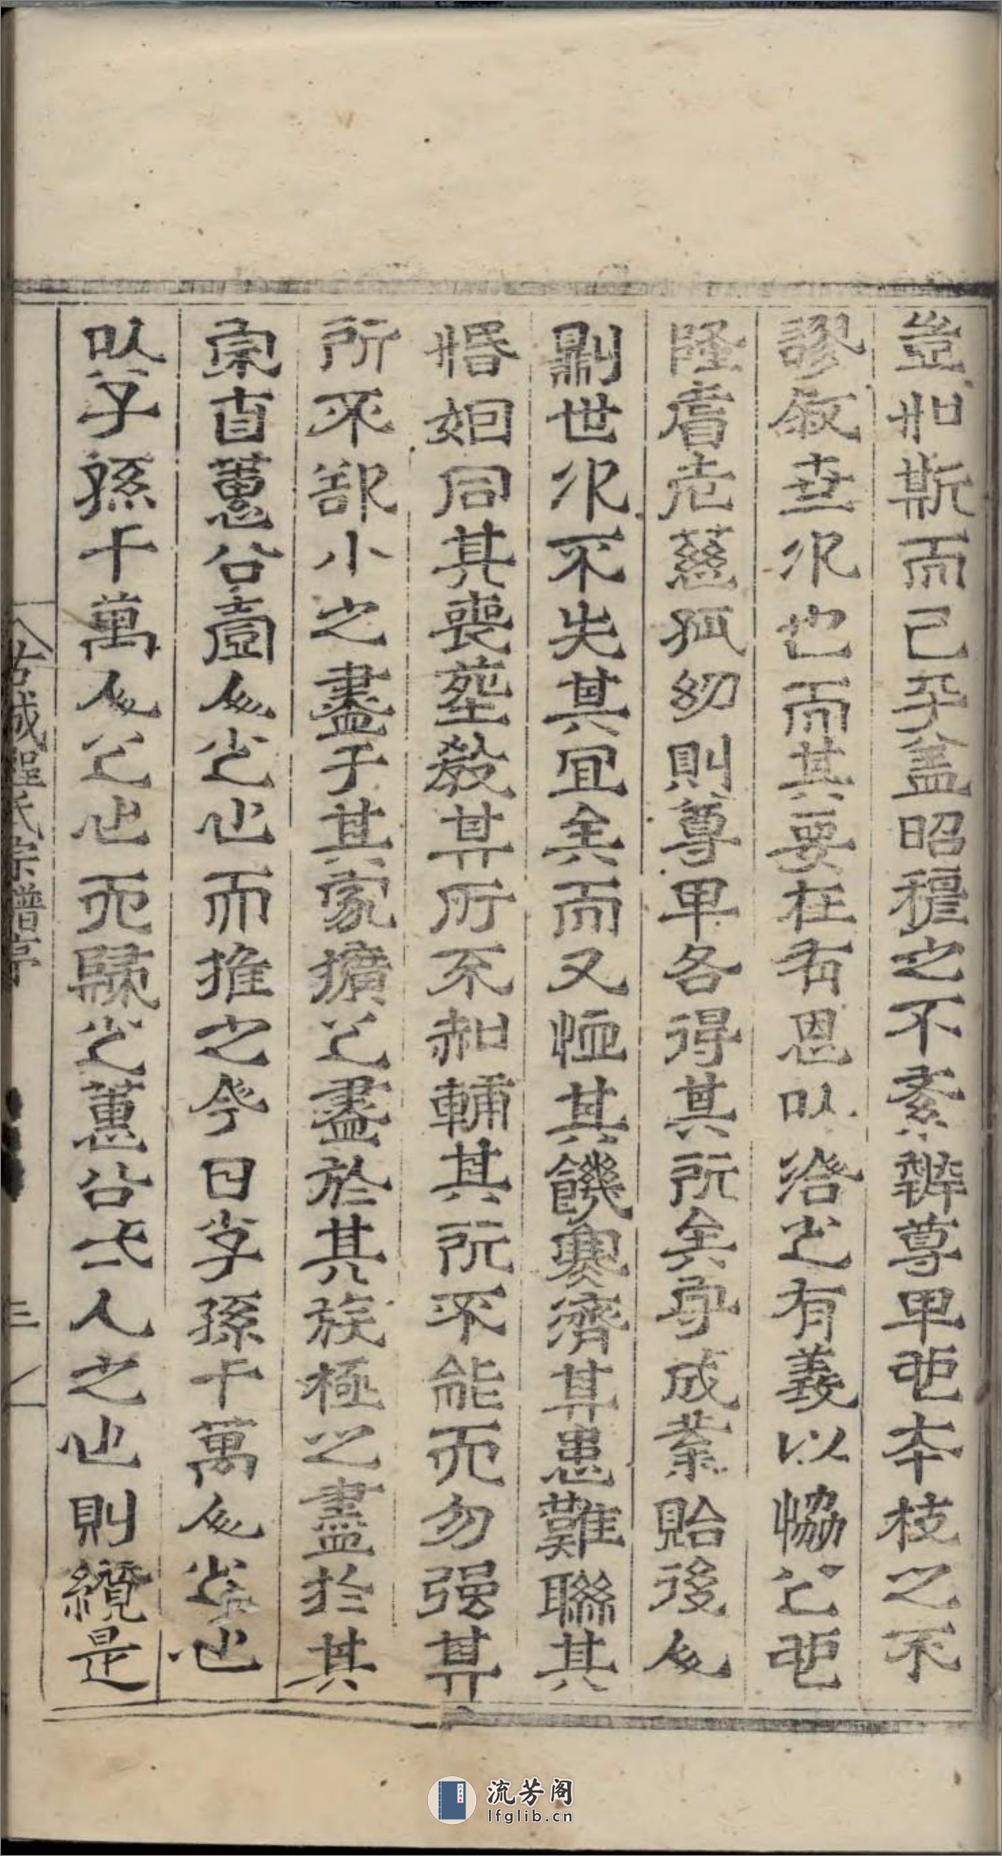 豈如斯而已乎盖昭穆之不紊辨尊卑昭本枝之不
謬叙世次也而其要在有恩以洽之有義以恊之昭
隆耆老慈孤幼則尊卑各得其所矣守成業貽後人
則世次不失其宜矣而又恤其饑寒濟其患難聯其
婚姻同其喪塟教其所不知輔其所不能而勿强其
所不郤小之盡于其家擴之盡於其族極之盡於其
宗直蕙公壹人之也而推之今日孝孫千萬人之也
以孝孫千萬人之也而歸之蕙公一人之也則纘是
古城程氏宗譜序
三
流芳阁
lfglib.cn